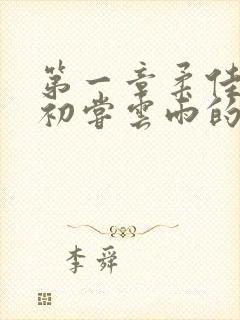 第一章柔佳
初尝云雨的
李舜